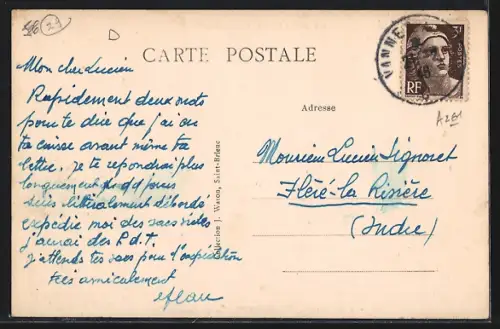 D
CARTE POSTALE
VANNES
RF
Adresse
Mon cher Lucien
Rapidement deux mots
pour te dire que j'ai eu
ta caisse avant même ta
lettre. je te répondrai plus
longuement jours
suis littéralement débordé
expédie moi des sacs vides
j'aurai des P.d.T.
j'attends tes sacs pour l'expédition
très amicalement
Collection J. Waron, Saint-Brieuc
Monsieur Lucien Signoret
Fléré-la Rivière
(Indre)